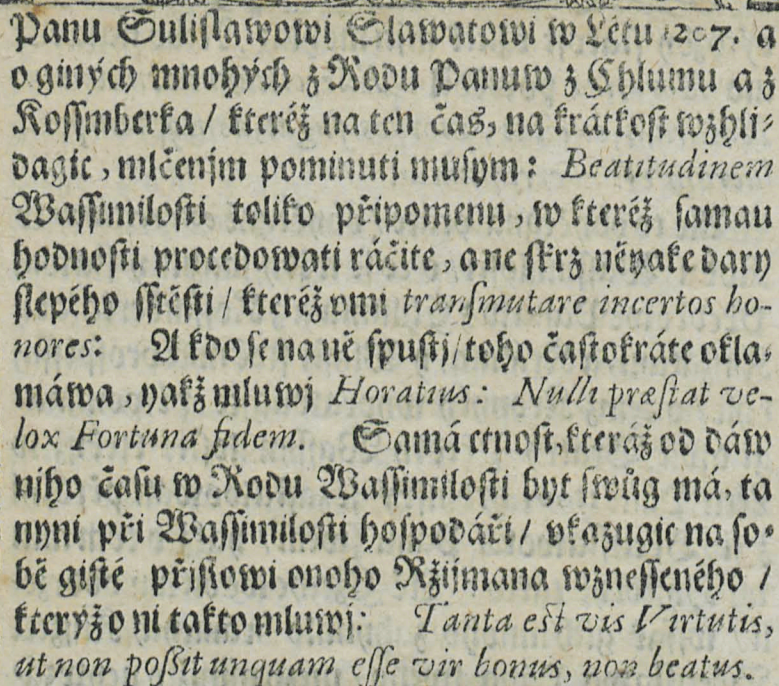 Panu Sulislawowi Slawatowi w Létu 1207. a
o giných mnohých z Rodu Panuw z Chlumu a z
Kossmberka / kteréž na ten čas, na krátkost wzhli⸗
dagic, mlčenjm pominuti musym: Beatitudinem
Wassimilosti toliko připomenu, w kteréž samau
hodnosti procedowati ráčite, a ne skrz něyake dary
slepého sstěsti / kteréž vmi transmutare incertos ho-
nores: A kdo se na ně spustj / toho častokráte okla⸗
máwa, yakž mluwj Horatius: Nulli præstat ve-
lox Fortuna fidem. Samá ctnost, kteráž od dáw
njho času w Rodu Wassimilosti byt swůg má, ta
nyni při Wassimilosti hospodáři / vkazugic na so⸗
bě gisté přjslowi onoho Ržijmana wznesseného /
kterýž o ni takto mluwj: Tanta est vis Virtutis,
ut non poßit unquam esse vir bonus, non beatus.